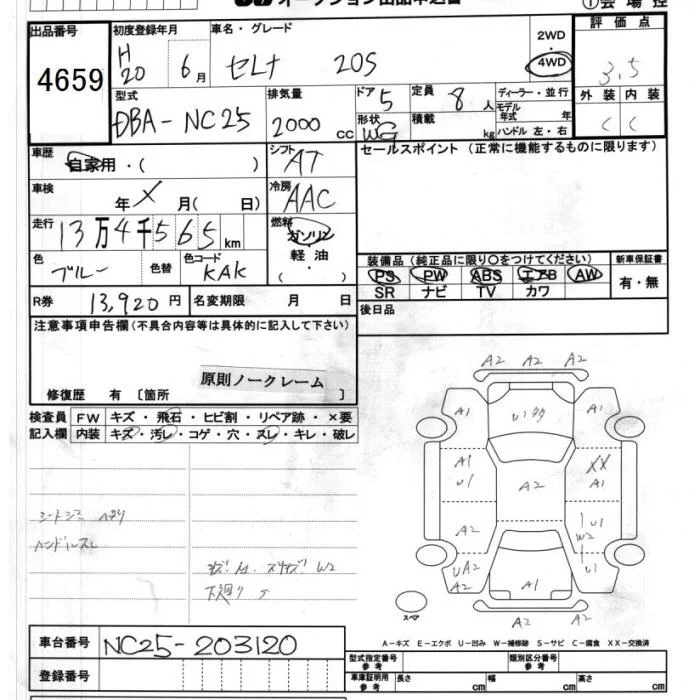 オークション出品申込書
①会場控
出品番号
4659
初度登録年月
H20 6月
車名・グレード
セレナ 20S
2WD
4WD
評価点
3.5
型式
DBA-NC25
排気量
2000 cc
ドア 5
形状 WG
定員 8人
積載 kg
ディーラー・並行
モデル年式 年
ハンドル 左・右
外装 内装
C C
車歴
自家用・( )
シフト AT
セールスポイント (正常に機能するものに限ります)
車検
年 X 月( 日)
冷房 AAC
走行
13万4千565 km
燃料
ガソリン
軽油
・
色 ブルー
色替
色コード KAK
装備品 (純正品に限り○をつけてください)
PS PW ABS エアB AW
SR ナビ TV カワ
新車保証書
有・無
R券 13,920円
名変期限 月 日
後日品
注意事項申告欄 (不具合内容等は具体的に記入して下さい)
原則ノークレーム
修復歴 有 [箇所 ]
検査員
記入欄
FW キズ・飛石・ヒビ割・リペア跡・×要
内装 キズ・汚レ・コゲ・穴・スレ・キレ・破レ
ハンドルスレ
下廻り
A2 A2 A2
A1 A1
A1 XX
U1 A2 A1
A2 U1
W2
UA2 A1 U1
スペア
A2 A2
A-キズ E-エクボ U-凹み W-補修跡 S-サビ C-腐食 XX-交換済
車台番号 NC25-203120
登録番号
型式指定番号
参考
類別区分番号
参考
車庫証明用
参考
長さ cm
幅 cm
高さ cm